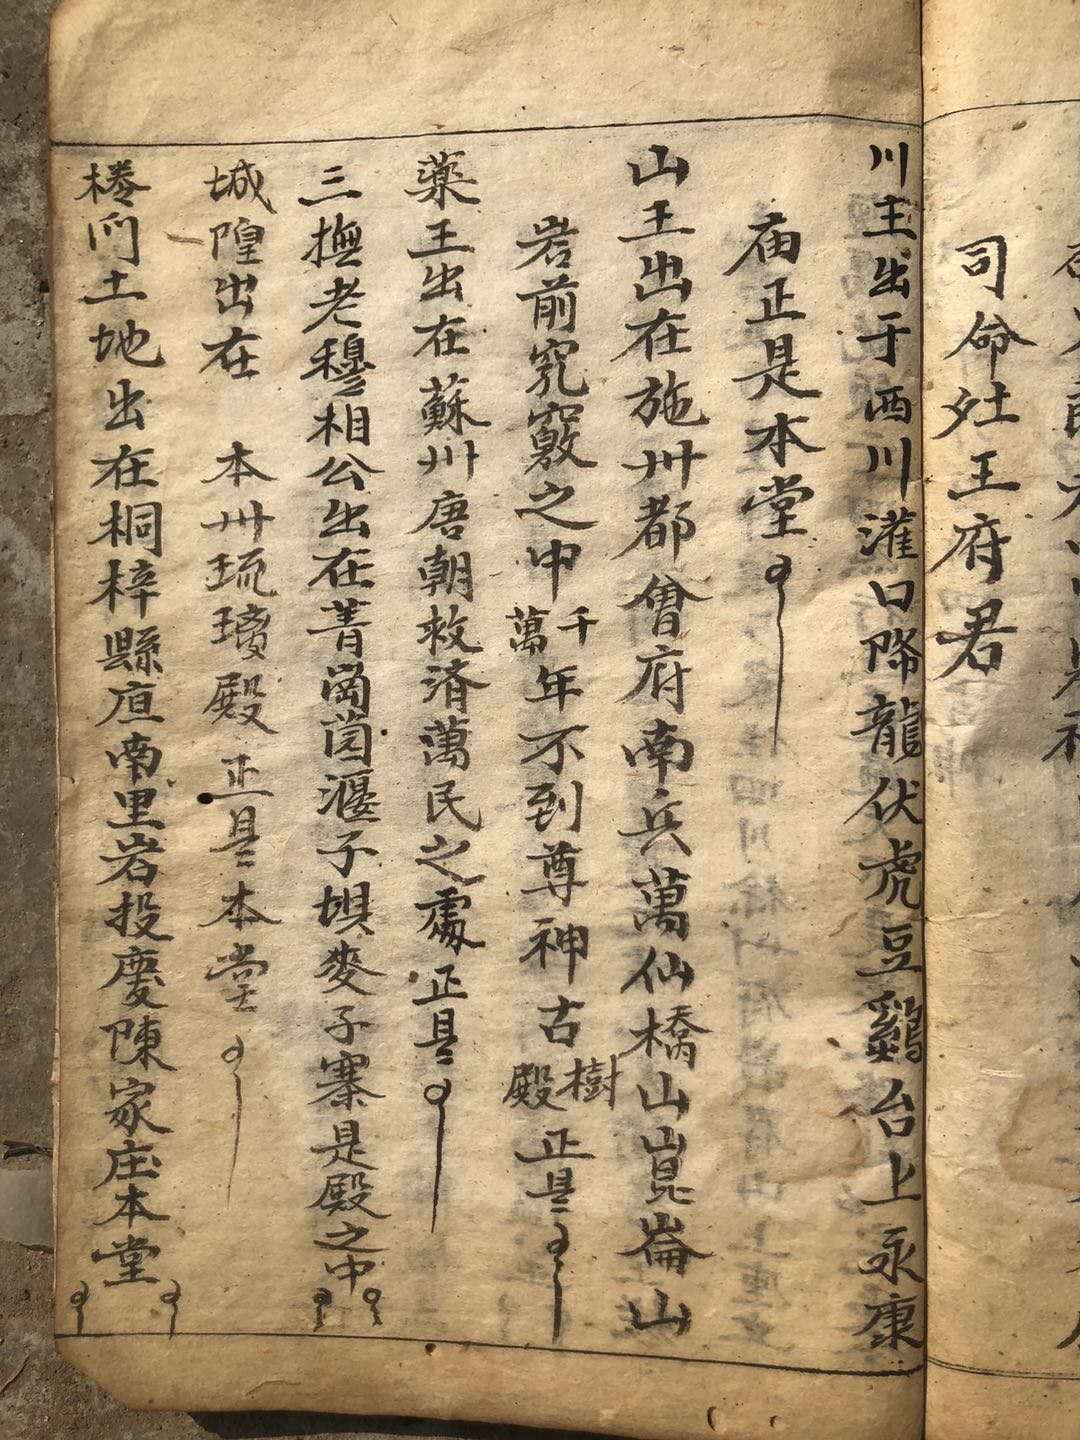 司命灶王府君
川主出于西川灌口降龍伏虎豆鷄台上永康
庙正是本堂
山王出在施州都會府南兵萬仙橋山崑崙山
岩前窕竅之中千萬年不到尊神古樹殿正是
藥王出在蘇州唐朝救济萬民之處正是
三撫老穆相公出在菁崗茵漫子壩麥子寨是殿之中
城隍出在 本州琉璃殿正是本堂
土地出在桐梓縣直南里岩投慶陳家庄本堂